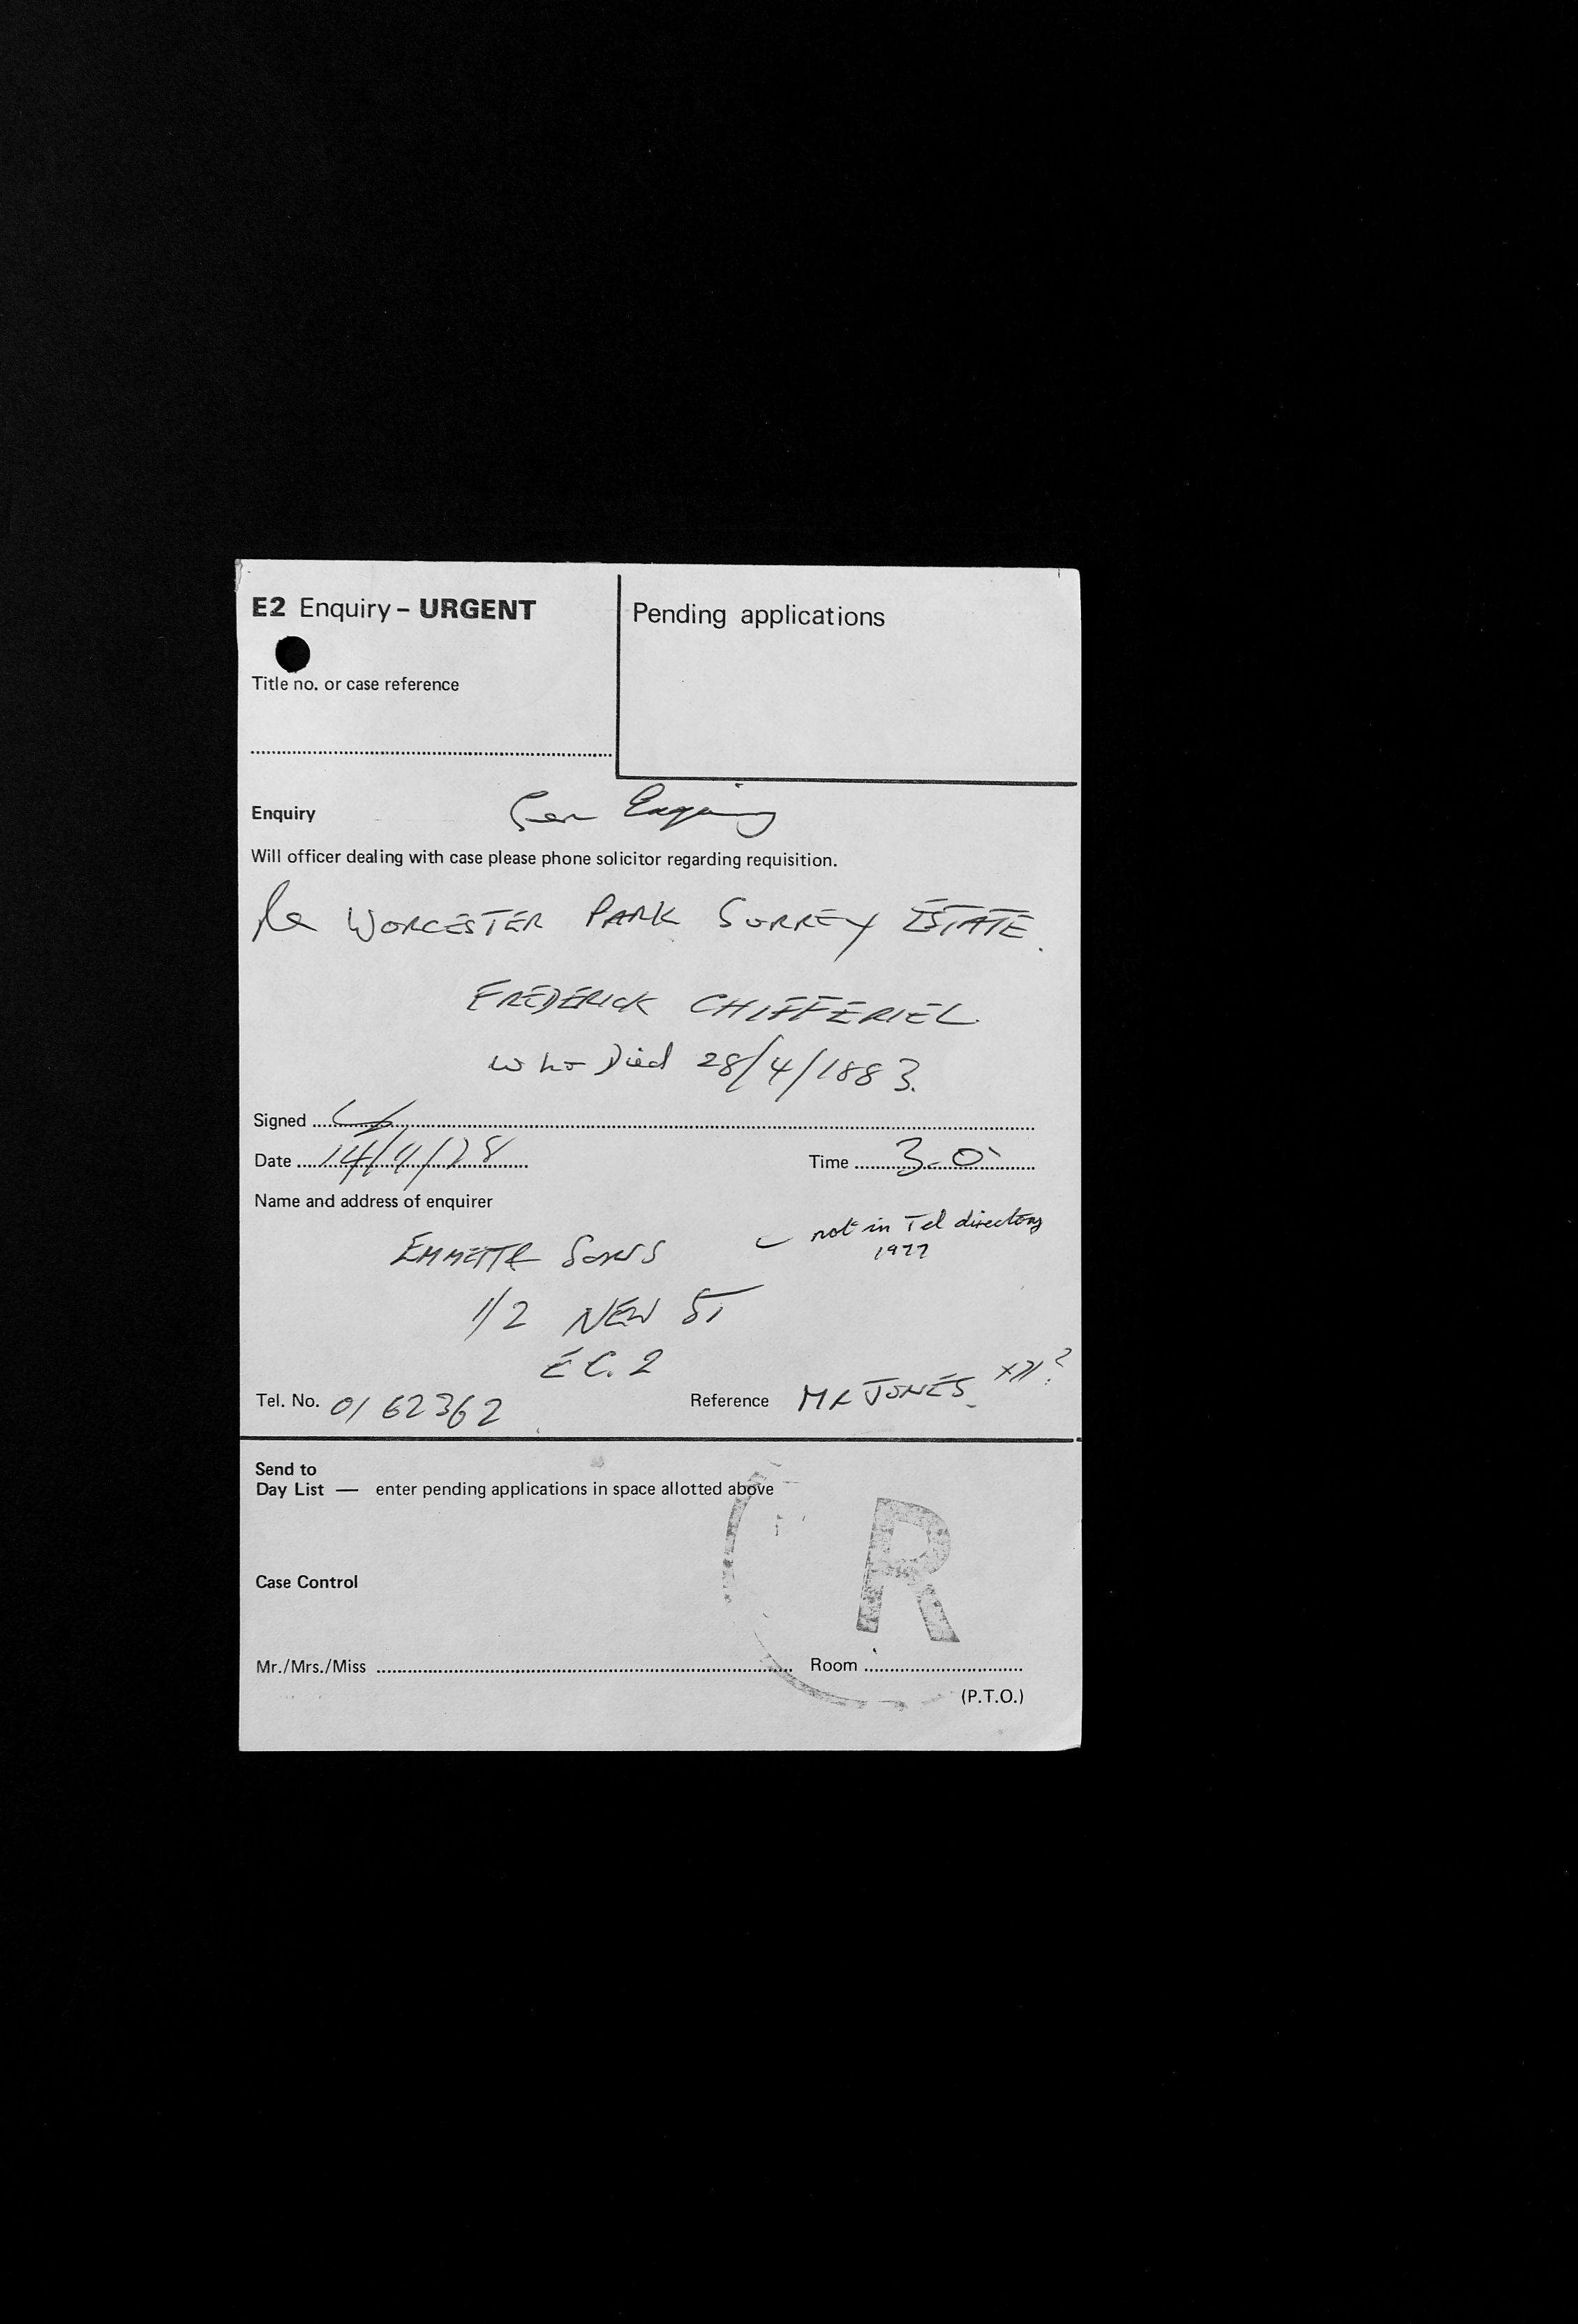 E2 Enquiry – URGENT
Pending applications
Title no. or case reference
Enquiry Gen Enquiry
Will officer dealing with case please phone solicitor regarding requisition.
Re WORCESTER PARK SURREY ESTATE.
FREDERICK CHIFFERIEL
who Died 28/4/1883.
Signed
Date 14/4/78 Time 3-0
Name and address of enquirer
not in Tel directory
1977
SONS
1/2 NEW ST
E C. 2
Tel. No. 01 62362 Reference MR JONES
Send to
Day List — enter pending applications in space allotted above
R
Case Control
Mr./Mrs./Miss Room
(P.T.O.)